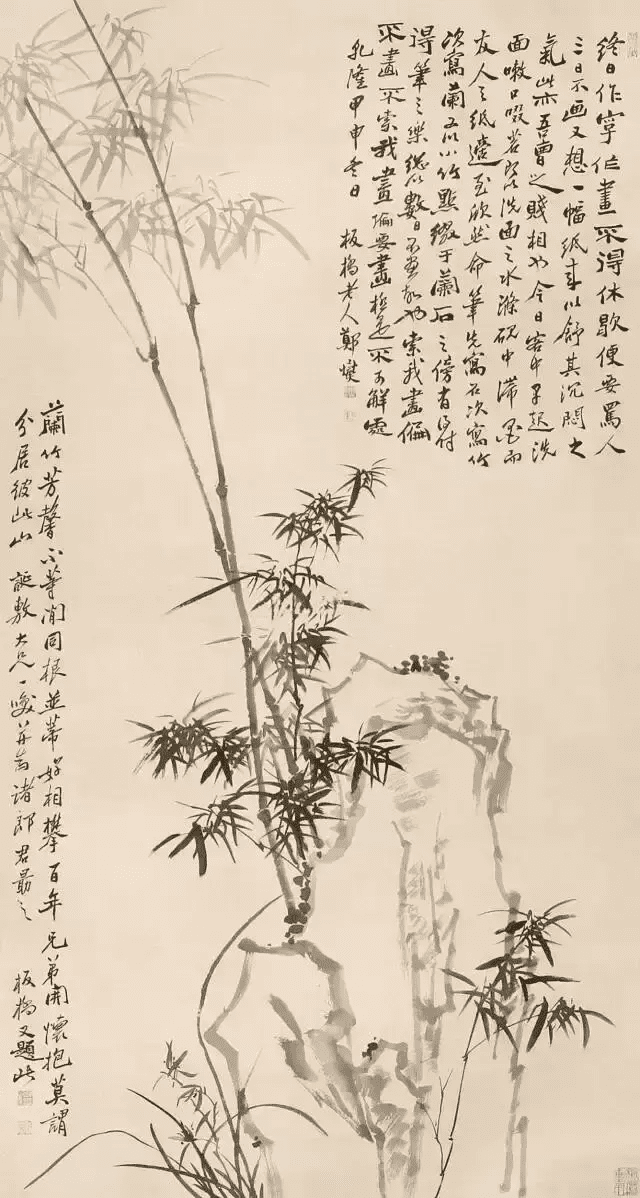 終日作字作畫不得休歇便要罵人
三日不画又想一幅紙来以舒其沉悶之
氣此亦吾曹之賤相也今日客中早起洗
面嗽口啜茗即以洗面之水滌硯中滯墨而
友人之紙適至欣然命筆先寫石次寫竹
次寫蘭又以小竹點綴于蘭石之傍有
得筆之樂總以數日不畫故也索我畫偏
不畫不索我畫偏要畫極是不可解處
乾隆甲申冬日 板橋老人鄭燮
蘭竹芳馨不等閒同根並蒂好相攀百年兄弟開懷抱莫謂
分居彼此山 誕敷大兄一咲并為諸郎君勖之 板橋又題此